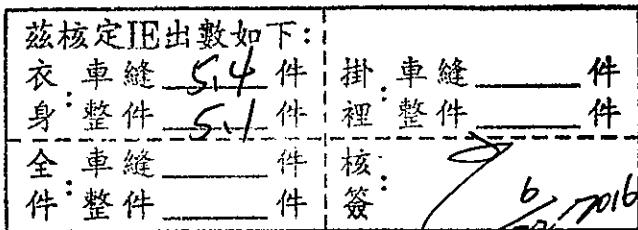 茲核定IE出數如下:
衣身: 車縫 5.4 件
整件 5.1 件
掛裡: 車縫 件
整件 件
全件: 車縫 件
整件 件
核簽:
6
2016